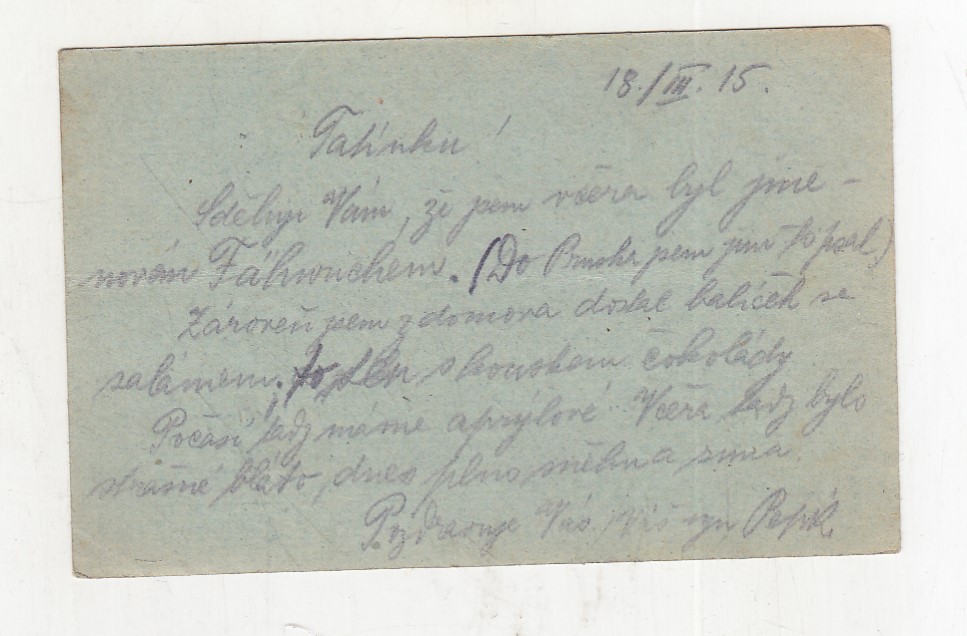 18./III. 15.
Tatínku!
Sděluji Vám, že jsem včera byl jme-
nován Fähnrichem. (Do Prahy jsem jim to psal.)
Zároveň jsem z domova dostal balíček se
salámem. s kouskem čokolády
Počasí tady máme aprýlové. Včera tady bylo
strašné bláto, dnes plno sněhu a zima.
Pozdravuje Vás Váš syn Pepík.